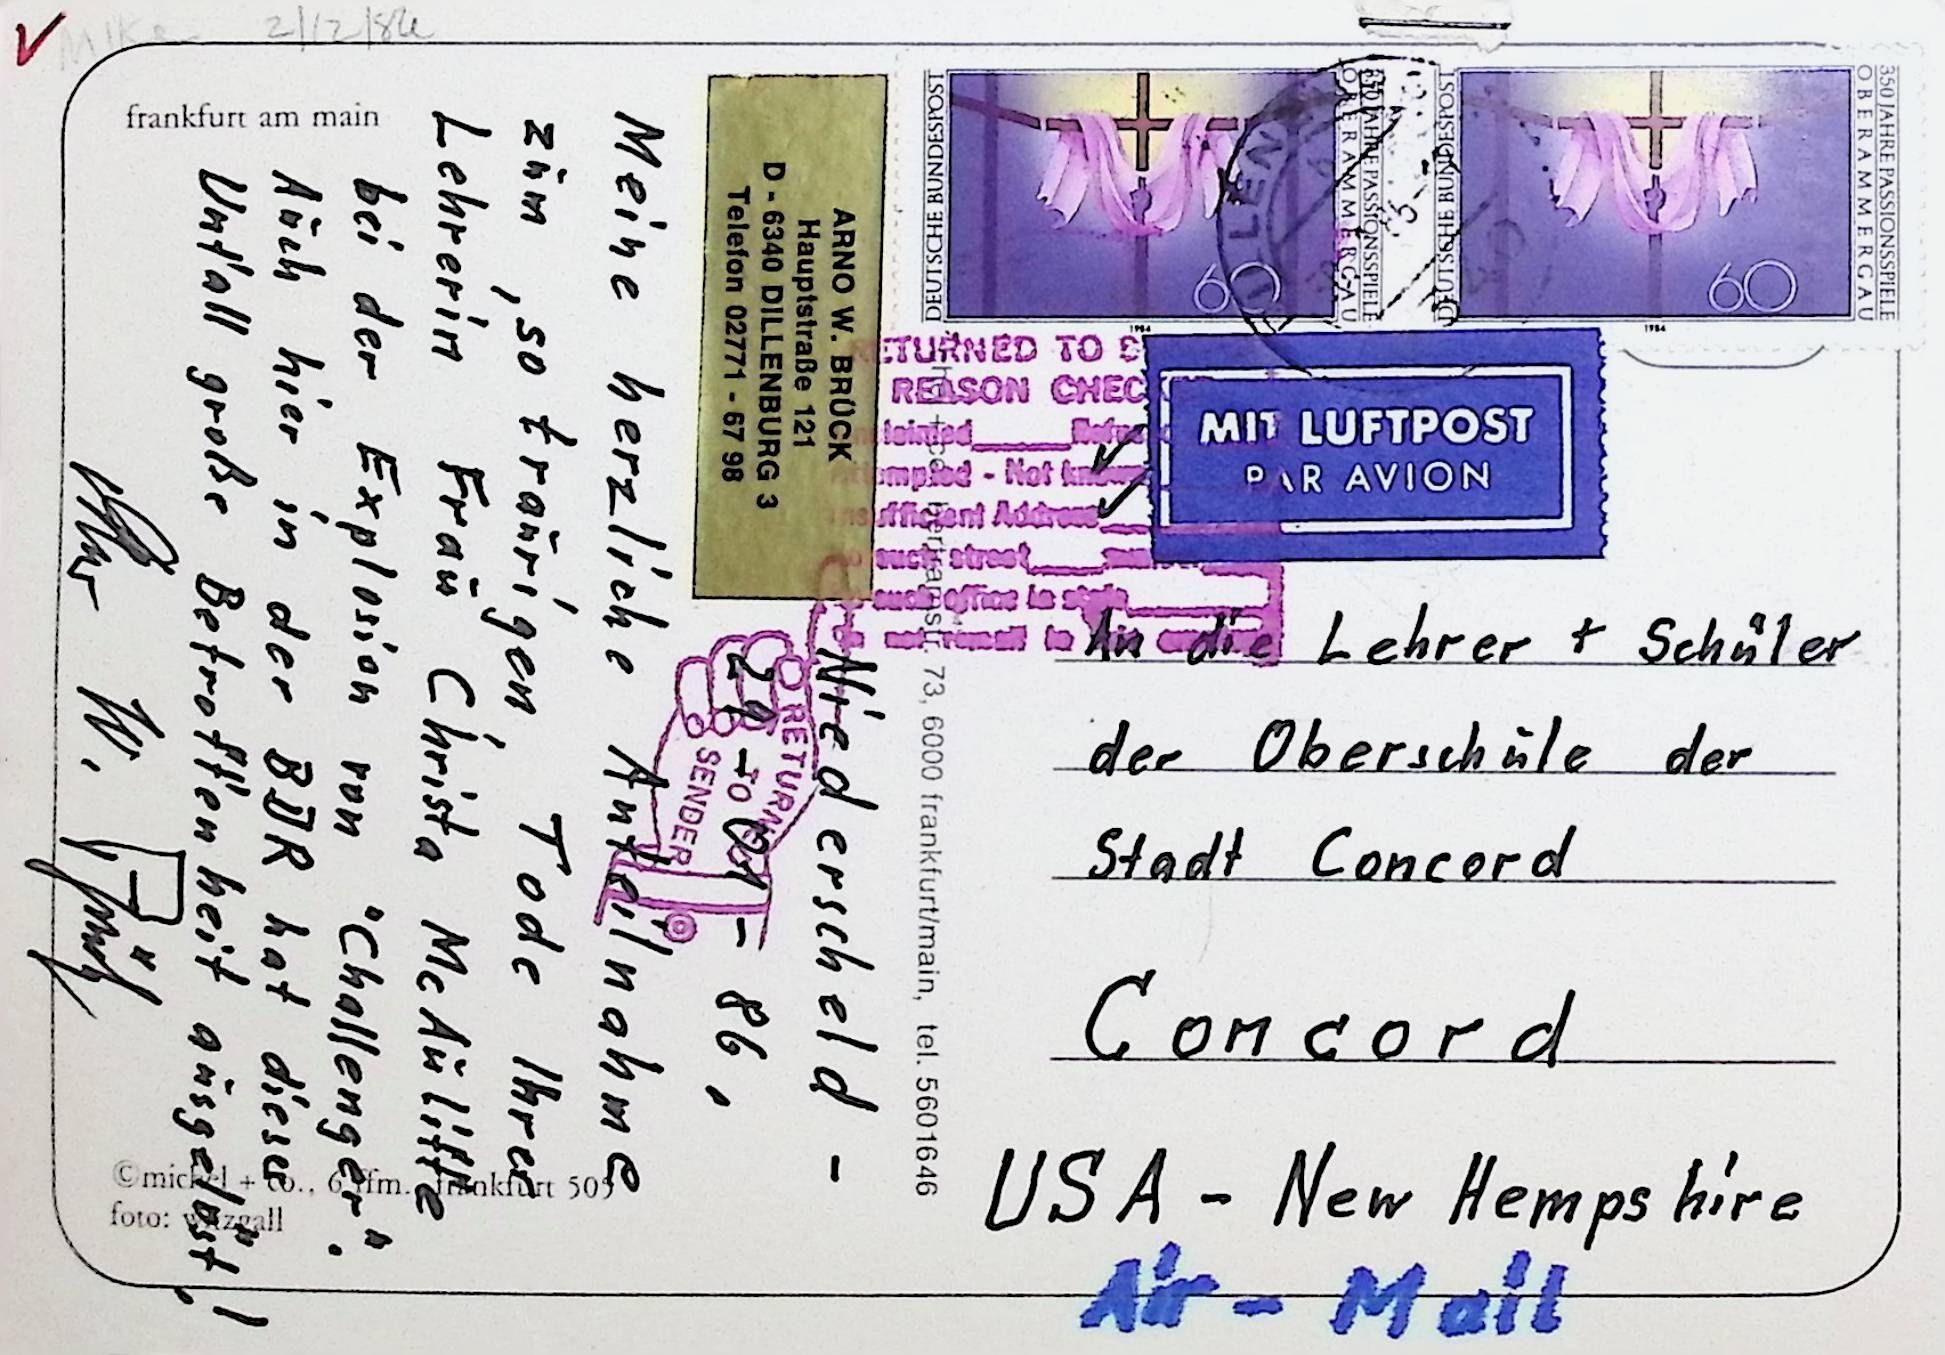 2/12/86
frankfurt am main
Niederscheld -
29 - 01 - 86,
Meine herzliche Anteilnahme
zum, so traurigen Tode Ihrer
Lehrerin Frau Christa McAuliffe
bei der Explosion von "Challenger".
Auch hier in der BDR hat dieser
Unfall große Betroffenheit ausgelöst!
W.
ARNO W. BRÜCK
Hauptstraße 121
D - 6340 DILLENBURG 3
Telefon 02771 - 67 98
RETURN
TO
SENDER
©mickel + co., 6 ffm. frankfurt 505
foto: witzgall
bertramstr. 73, 6000 frankfurt/main, tel. 5601646
DEUTSCHE BUNDESPOST
350 JAHRE PASSIONSSPIELE
OBERAMMERGAU
60
1984
DEUTSCHE BUNDESPOST
350 JAHRE PASSIONSSPIELE
OBERAMMERGAU
60
1984
RETURNED TO
REASON
Not
Insufficient Address
such street
such office in state
MIT LUFTPOST
PAR AVION
An die Lehrer + Schüler
der Oberschule der
Stadt Concord
Concord
USA - New Hempshire
Air - Mail